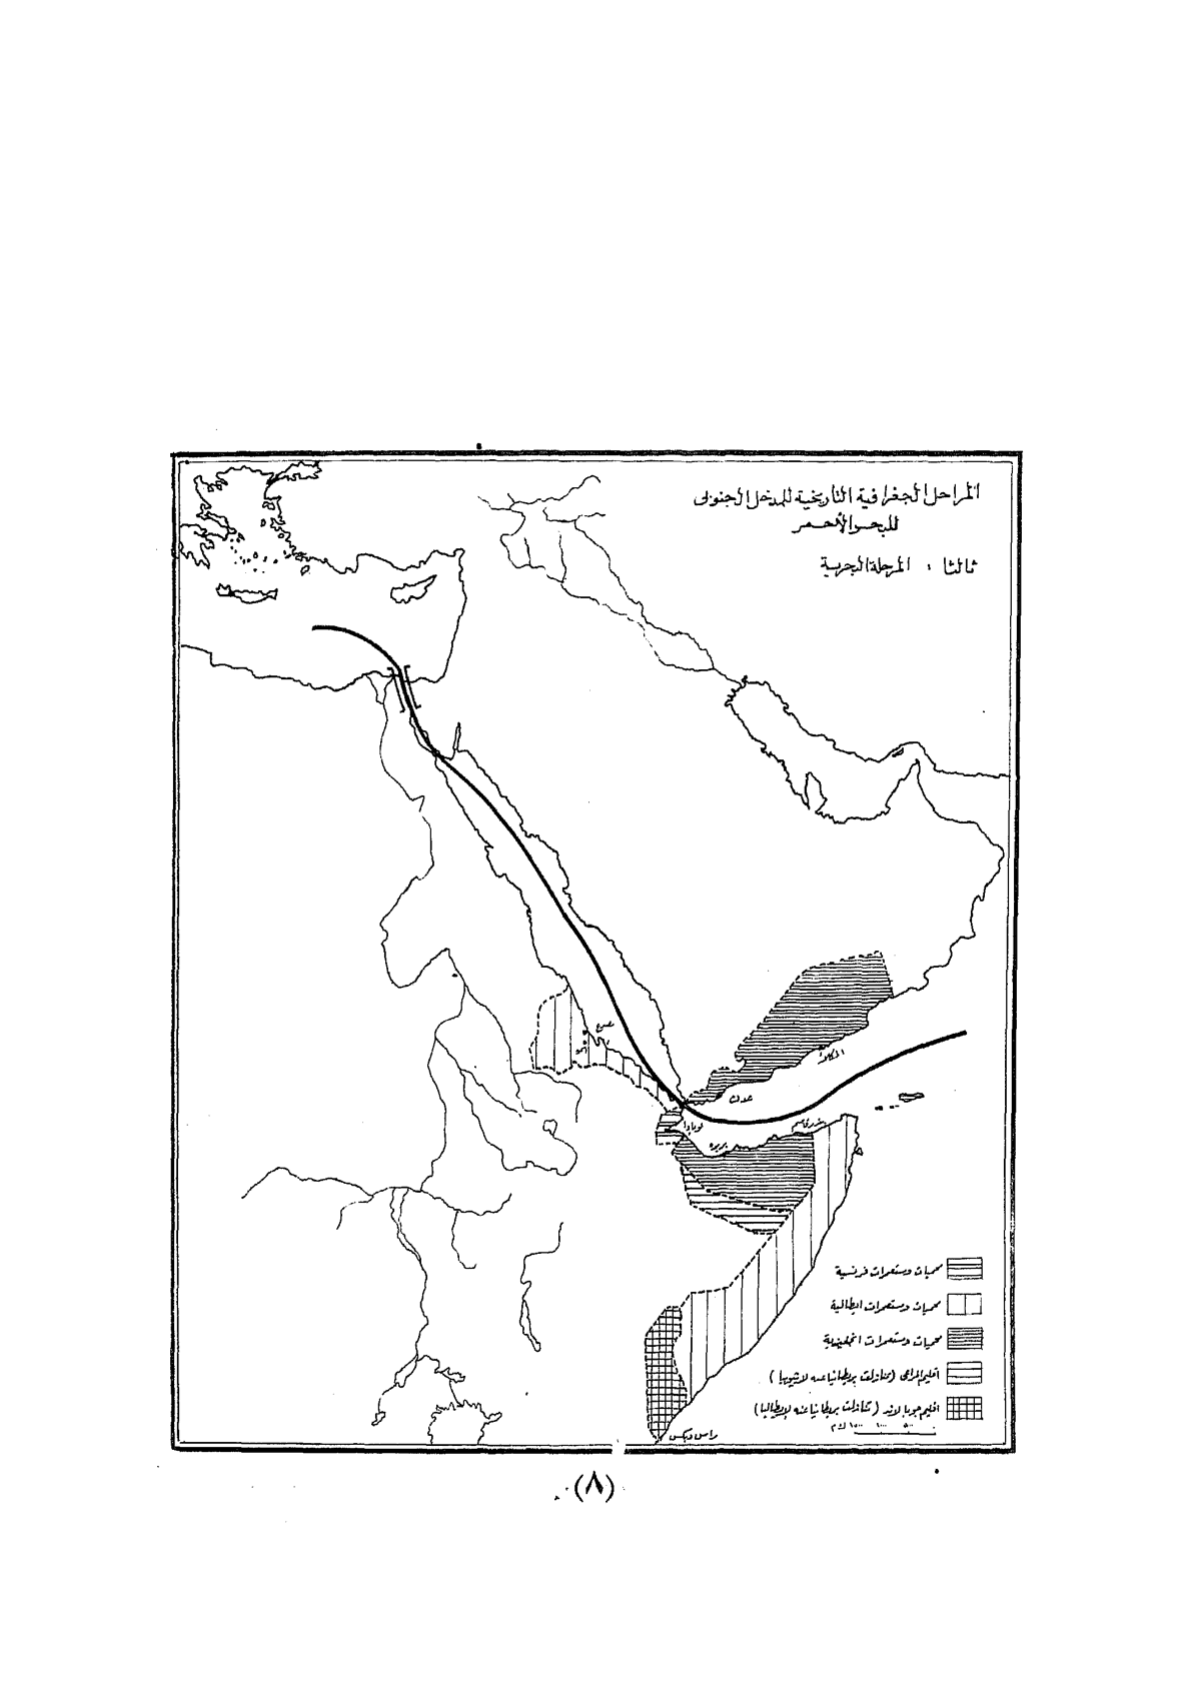 المراحل الجغرافية التاريخية للمدخل الجنوبى
للبحر الأحمر
ثالثا : المرحلة الحربية
مصوع
المكلا
عدن
بربره
محميات ومستعمرات فرنسية
محميات ومستعمرات ايطالية
محميات ومستعمرات انجليزية
اقليم المراعى (تنازلت بريطانيا عنه لاثيوبيا)
اقليم جوبا لاند (تنازلت بريطانيا عنه لإيطاليا)
٥٠٠ ١٠٠٠ ١٥٠٠ ك م
راس ديكس
(٨)